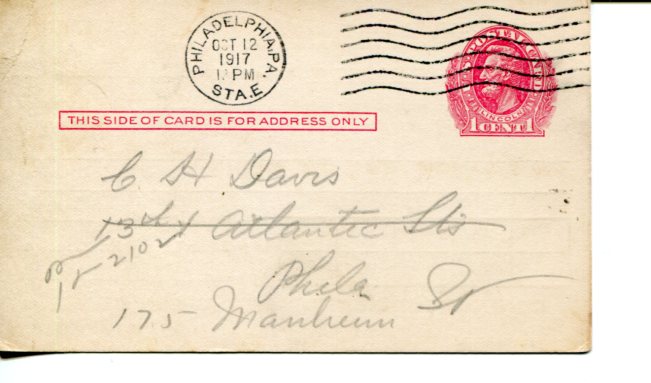 PHILADELPHIA, PA.
OCT 12
1917
PM
STA. E
U.S. POSTAL CARD
LINCOLN
1 CENT 1
THIS SIDE OF CARD IS FOR ADDRESS ONLY
C H Davis
13th & Atlantic Sts
2102
Phila
175 Manheim St